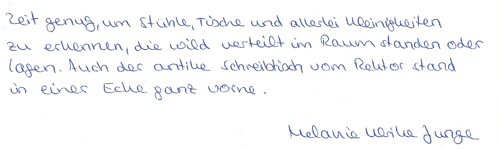 Zeit genug, um Stühle, Tische und allerlei Kleinigkeiten
zu erkennen, die wild verteilt im Raum standen oder
lagen. Auch der antike Schreibtisch vom Rektor stand
in einer Ecke ganz vorne.
Melanie Ulrike Junge